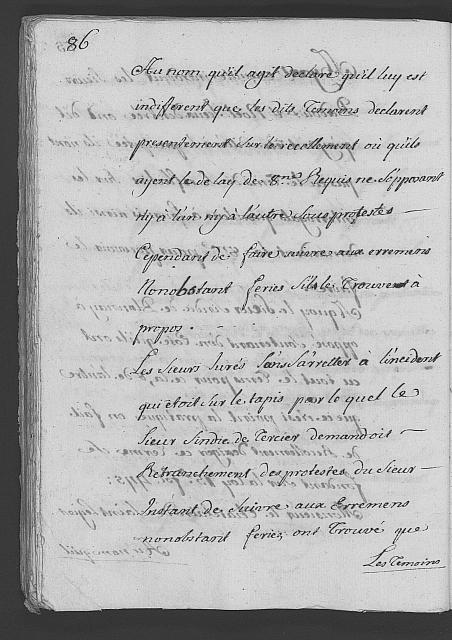 86
Au nom qu'il agit declare qu'il luy est
indifferent que les dits Temoins declarent
presentement sur le recollement où qu'ils
ayent le delay de 8ne Requis ne s'opposant
ny à l'un ny à l'autre sous protestes —
Cependant de faire suivre aux erremens
Nonobstant feries s'ils le Trouvent à
propos.
Les Sieurs Jurés sans s'arretter à l'incident
qui étoit sur le tapis par le quel le
Sieur Sindic de Tercier demandoit —
Retranchement des protestes du Sieur —
Instant de suivre aux Erremens
nonobstant feries ont Trouvé que
Les Temoins